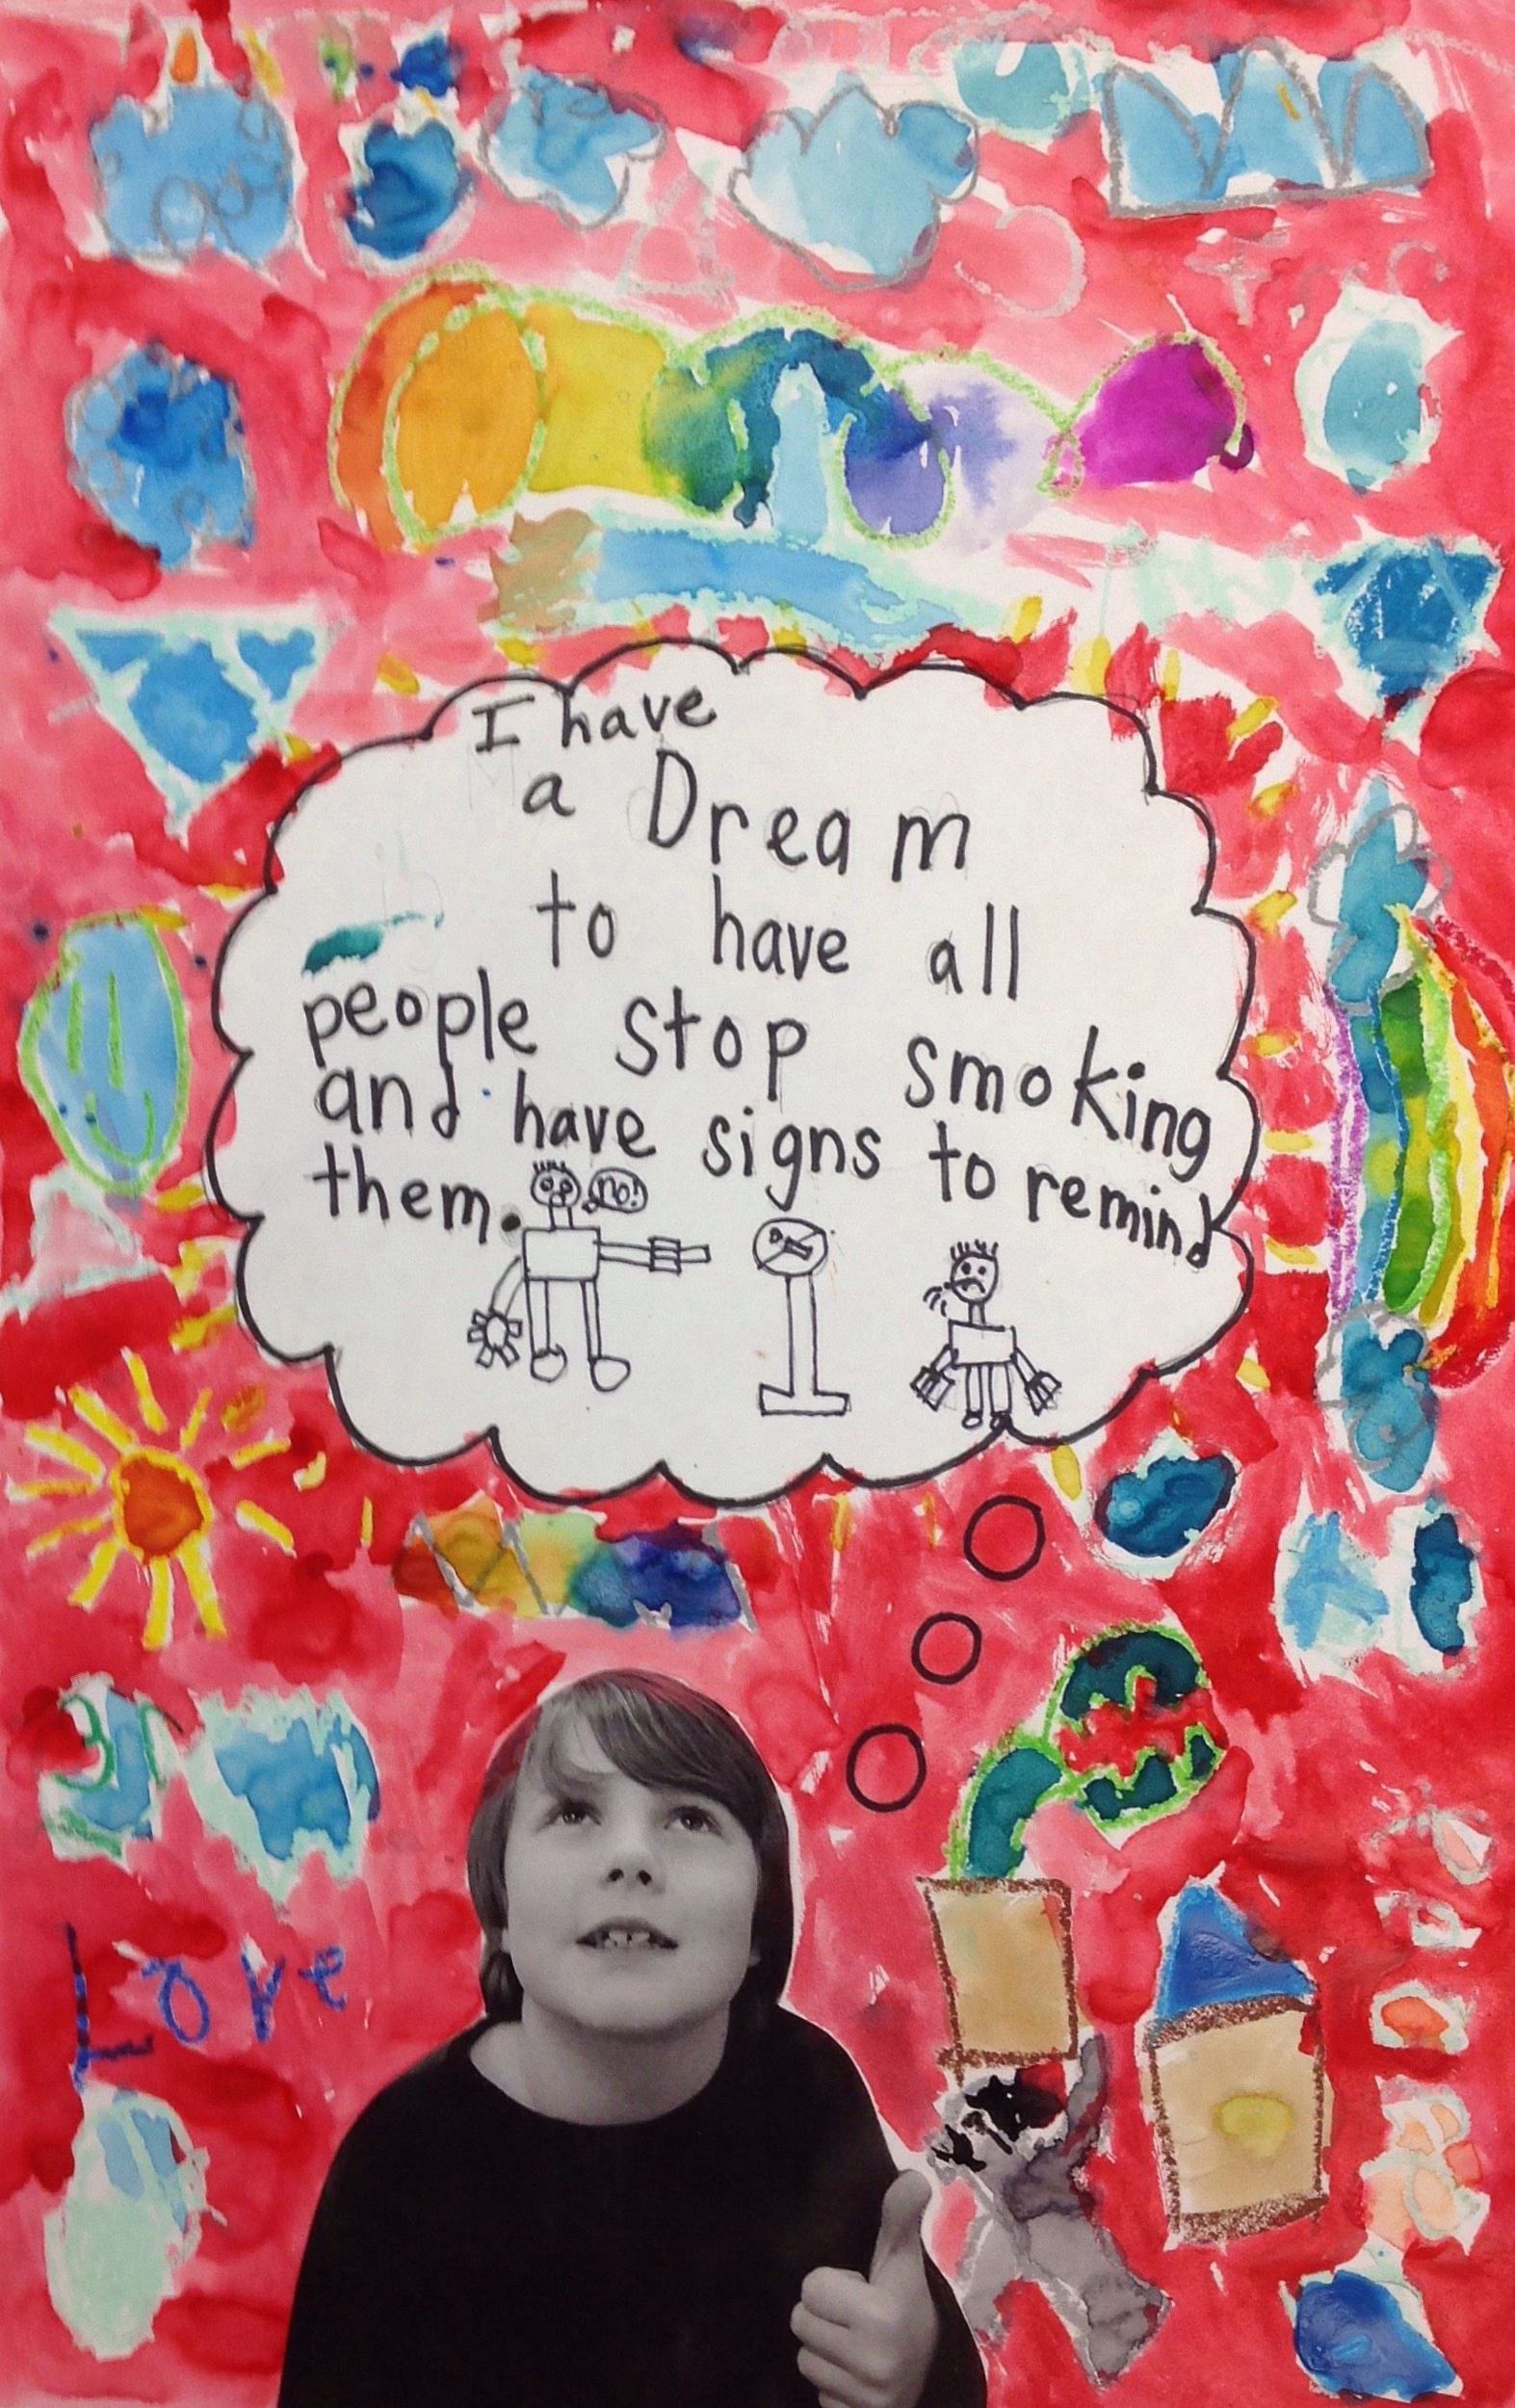 I have
a Dream
to have all
people stop smoking
and have signs to remind
them.
no!
Love